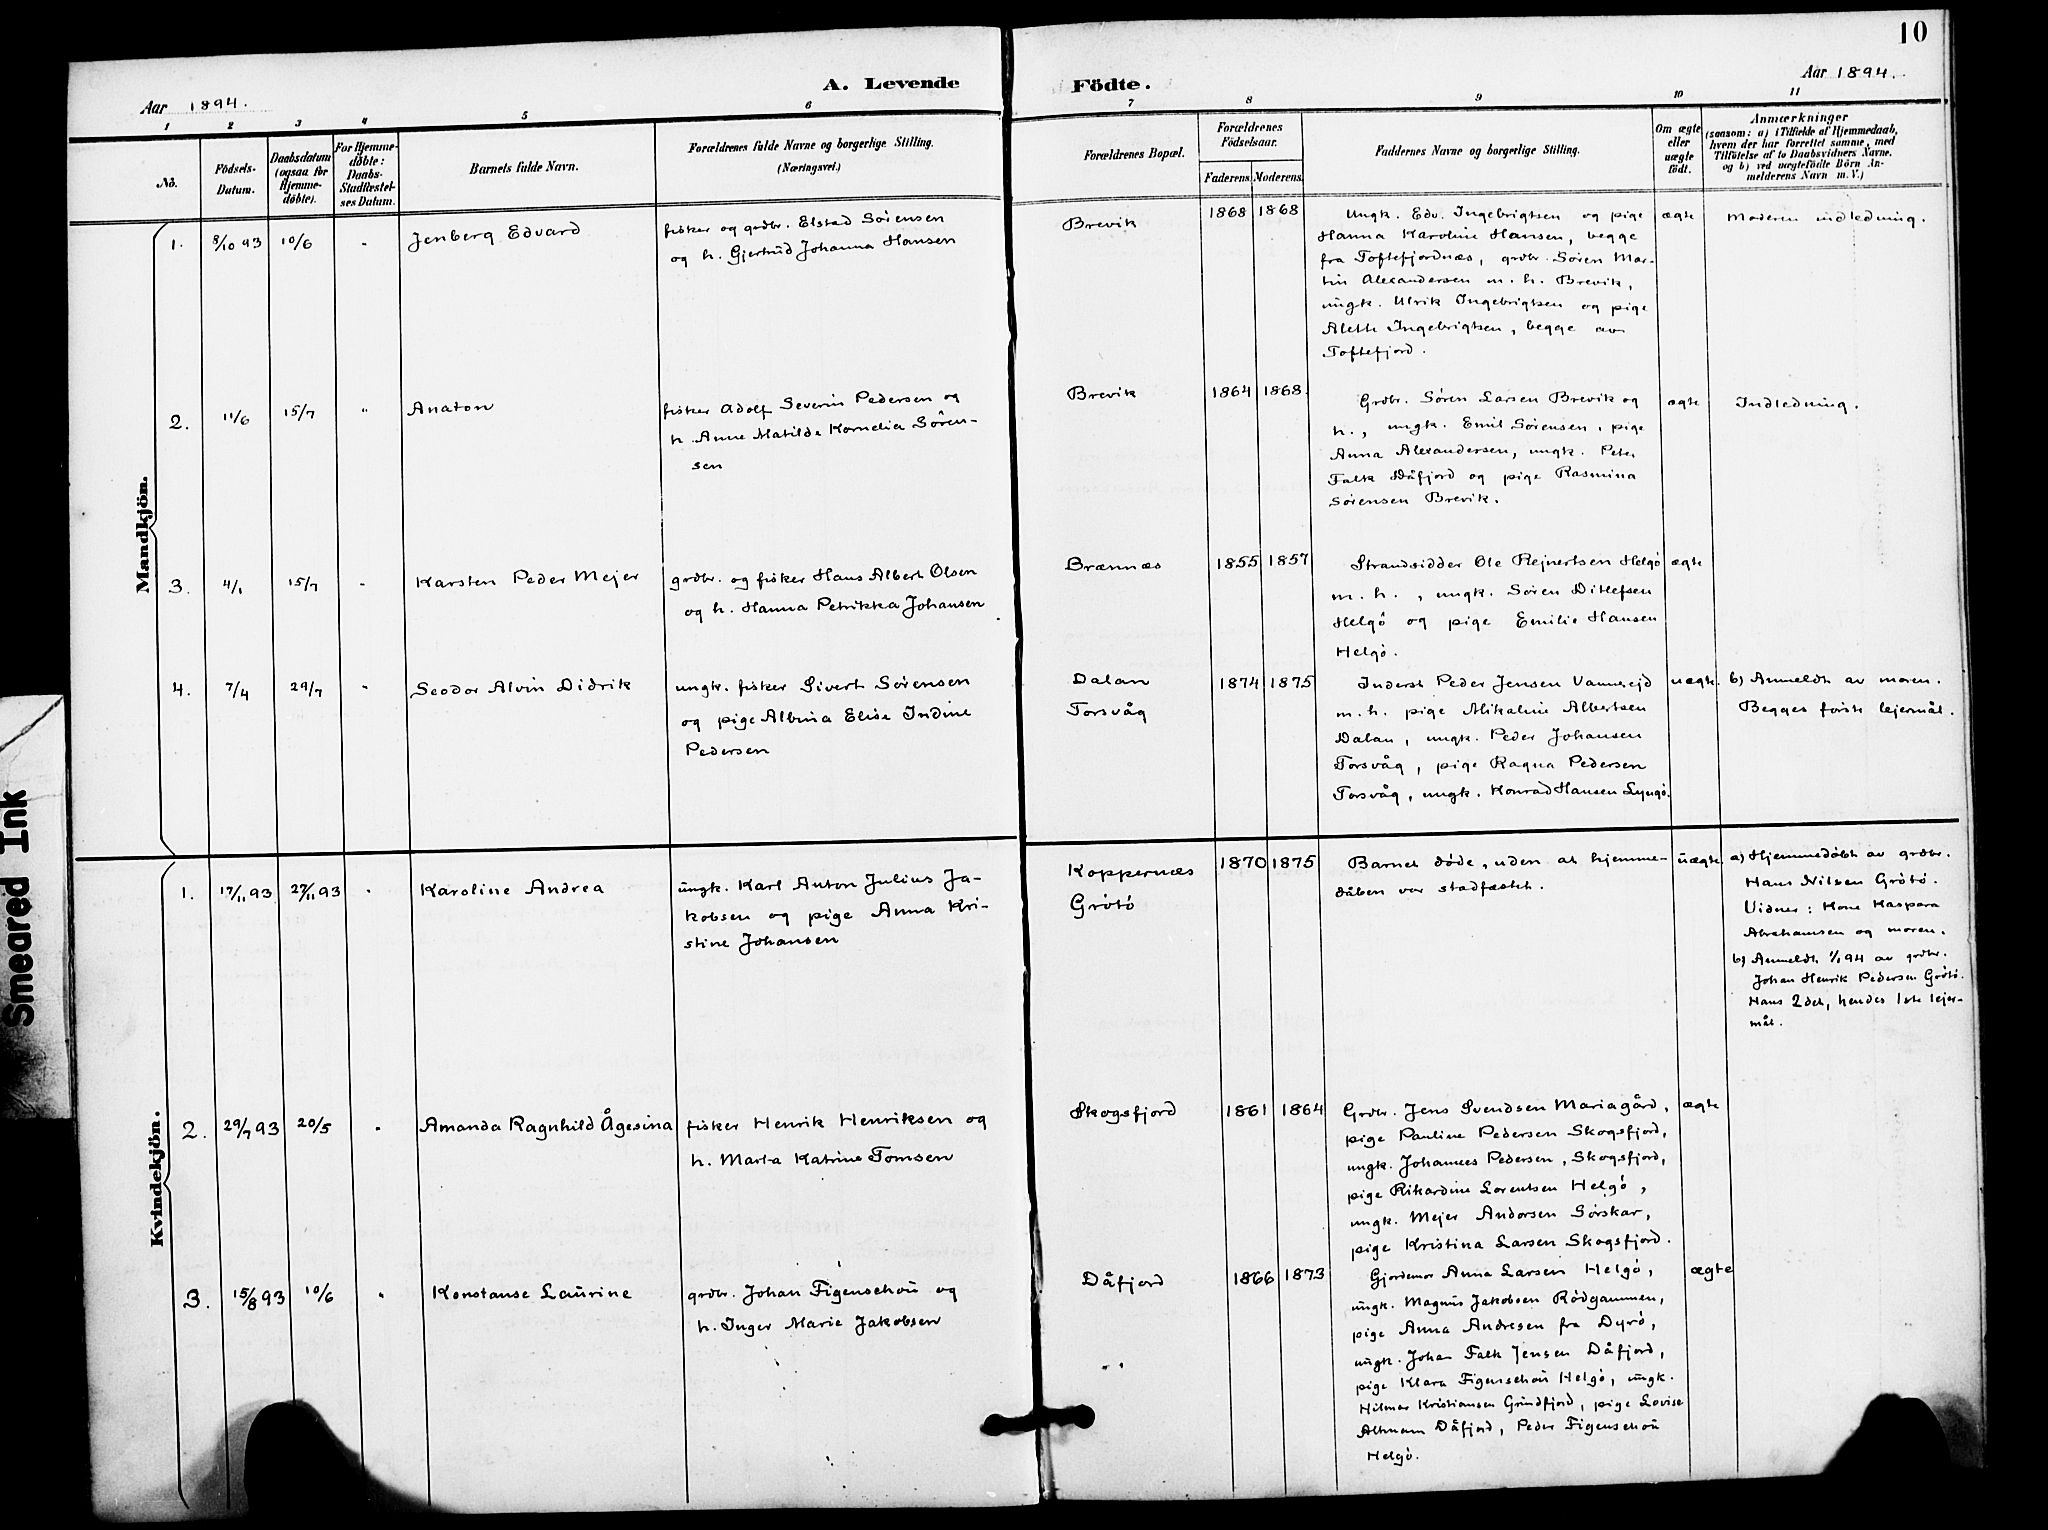 10
Aar 1894.
A. Levende
Födte.
Aar 1894.
1 2 3 4 5 6 7 8 9 10 11
No.
Födsels-
Datum.
Daabsdatum
(ogsaa for
Hjemme-
døbte).
For Hjemme-
døbte:
Daabs-
Stadfæstel-
ses Datum.
Barnets fulde Navn.
Forældrenes fulde Navne og borgerlige Stilling.
(Næringsvei.)
Forældrenes Bopæl.
Forældrenes
Födselsaar.
Faderens. Moderens.
Faddernes Navne og borgerlige Stilling.
Om ægte
eller
uægte
født.
Anmærkninger
(saasom: a) i Tilfælde af Hjemmedaab,
hvem der har forrettet samme, med
Tilføielse af to Daabsvidners Navne.
og b) ved uægtefødte Börn An-
melderens Navn m. V.)
Mandkjön.
1. 8/10 93 10/6 " Jenberg Edvard
fisker og grdbr. Elstad Sørensen
og h. Gjertrud Johanna Hansen
Brevik
1868 1868
Ungk. Edv. Ingebrigtsen og pige
Hanna Karoline Hansen, begge
fra Toftefjordnæs, grdbr. Søren Mar-
tin Alexandersen m. h. Brevik,
ungk. Ulrik Ingebrigtsen og pige
Aleth Ingebrigtsen, begge av
Toftefjord.
ægte
Moderen indledning.
2. 11/6 15/7 " Anaton
fisker Adolf Severin Pedersen og
h. Anne Matilde Kornelia Søren-
sen
Brevik
1864 1868.
Grdbr. Søren Larsen Brevik og
h., ungk. Emil Sørensen, pige
Anna Alexandersen, ungk. Peter
Falk Dåfjord og pige Rasmina
Sørensen Brevik.
ægte
Indledning.
3. 4/1 15/7 " Karsten Peder Mejer
grdbr. og fisker Hans Albert Olsen
og h. Hanna Petrikka Johansen
Brænnæs
1855 1857
Strandsidder Ole Rejnertsen Helgö
m. h., ungk. Søren Ditlefsen
Helgö og pige Emilie Hansen
Helgö.
ægte
4. 7/4 29/7 " Seodor Alvin Didrik
ungk. fisker Sivert Sørensen
og pige Albina Elise Indine
Pedersen
Dalan
Torsvåg
1874 1875
Inderst Peder Jensen Vannrejd
m. h. pige Mikaline Albertsen
Dalan, ungk. Peder Johansen
Torsvåg, pige Ragna Pedersen
Torsvåg, ungk. Konrad Hansen Lyngö.
uægte.
b) Anmeldt av moren.
Begges første lejermål.
Kvindekjön.
1. 17/11 93 27/11 93 " Karoline Andrea
ungk. Karl Anton Julius Ja-
kobsen og pige Anna Kri-
stine Johansen
Koppernæs
Grötö
1870 1875
Barnet døde, uden at hjemme-
dåben var stadfæstet.
uægte
a) Hjemmedøbt av grdbr.
Hans Nilsen Grötö.
Vidner: Kone Kaspara
Abrahamsen og moren.
b) Anmeldt 1/1 94 av grdbr.
Johan Henrik Pedersen Grötö.
Hans 2det, hendes 1ste lejer-
mål.
2. 29/7 93 20/5 " Amanda Ragnhild Ågesina
fisker Henrik Henriksen og
h. Marta Katrine Tomsen
Skogsfjord
1861 1864
Grdbr. Jens Svendsen Mariagård,
pige Pauline Pedersen Skogsfjord,
ungk. Johannes Pedersen, Skogsfjord,
pige Rikardine Lorentsen Helgö,
ungk. Mejer Andorsen Sörskar,
pige Kristina Larsen Skogsfjord.
ægte
3. 15/8 93 10/6 " Konstanse Laurine
grdbr. Johan Figenschou og
h. Inger Marie Jakobsen
Dåfjord
1866 1873
Gjordemor Anna Larsen Helgö,
ungk. Magnus Jakobsen Rödgammen,
pige Anna Andresen fra Dyrö,
ungk. Johan Falk Jensen Dåfjord,
pige Klara Figenschou Helgö, ungk.
Hilmar Kristiansen Grundfjord, pige Lovise
Altmann Dåfjord, Peder Figenschou
Helgö.
ægte
Smeared Ink